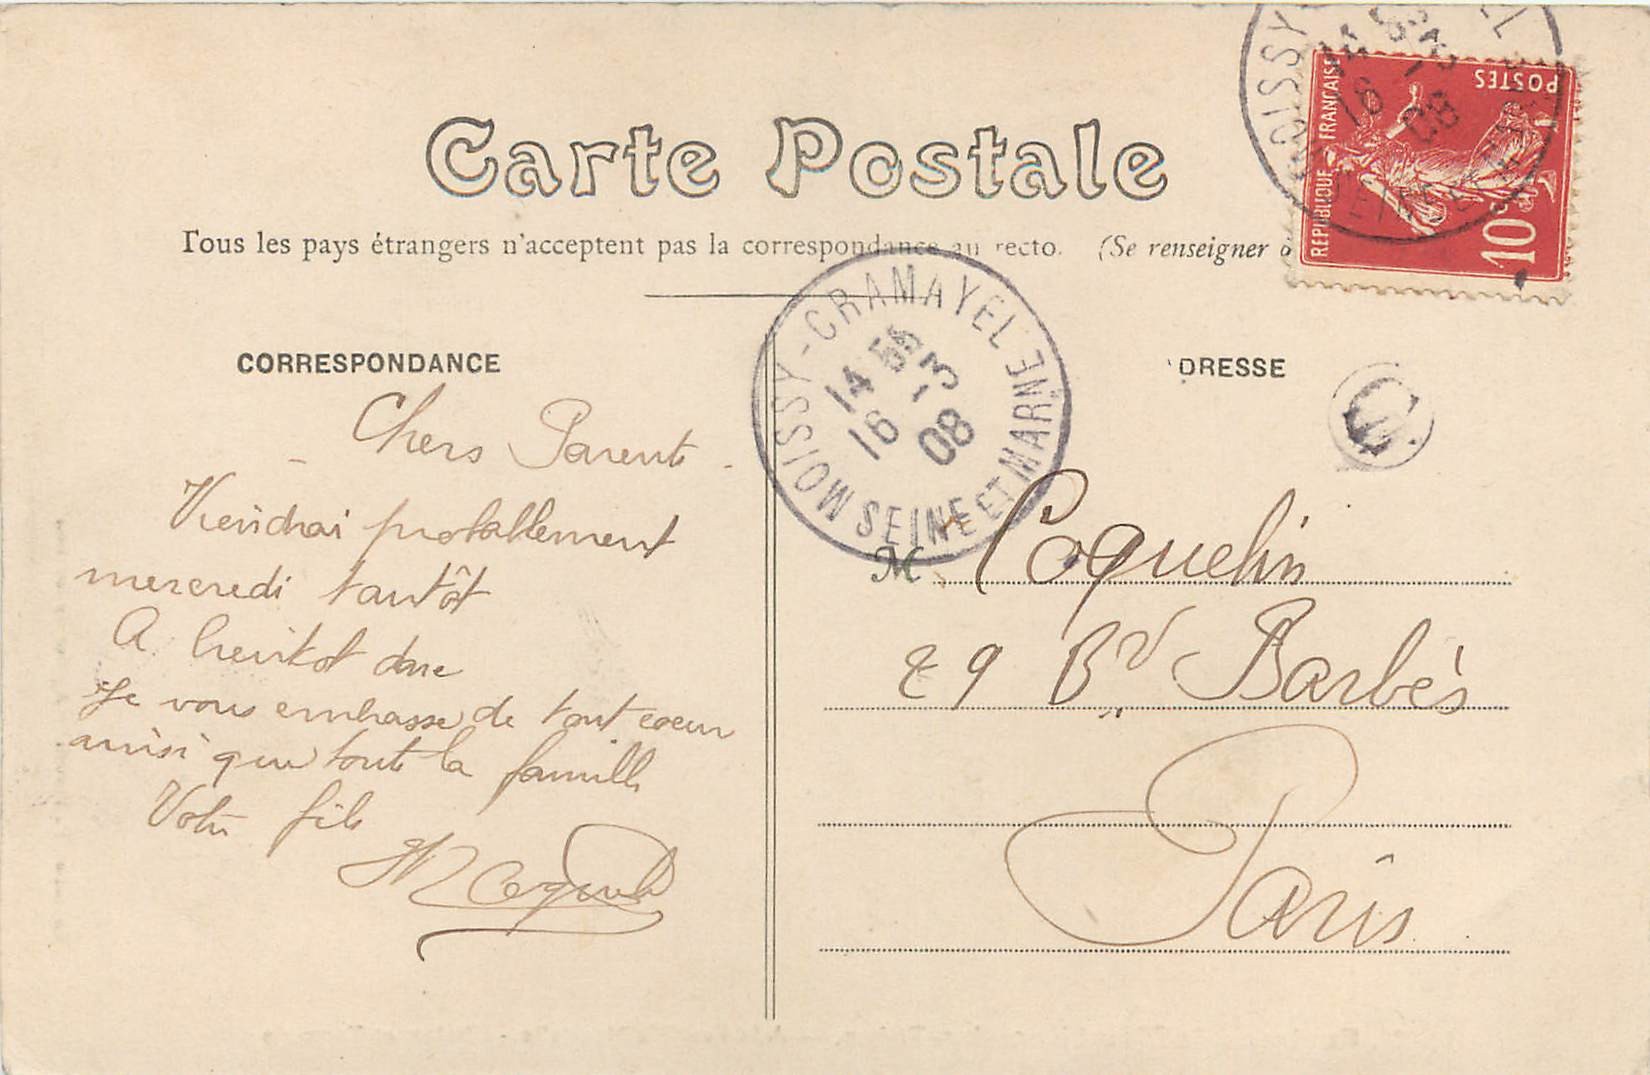 Carte Postale
Tous les pays étrangers n'acceptent pas la correspondance au recto. (Se renseigner
CORRESPONDANCE
Chers Parents
Viendrai probablement
mercredi tantôt
A bientot donc
Je vous embrasse de tout coeur
ainsi que toute la famille
Votre fils
MOISSY-CRAMAYEL
14 55
16 -3
08
SEINE ET MARNE
DRESSE
M Coquelin
29 Bd Barbès
Paris
POSTES
REPUBLIQUE FRANCAISE
10c
OISSY
14 55
16 -3
08